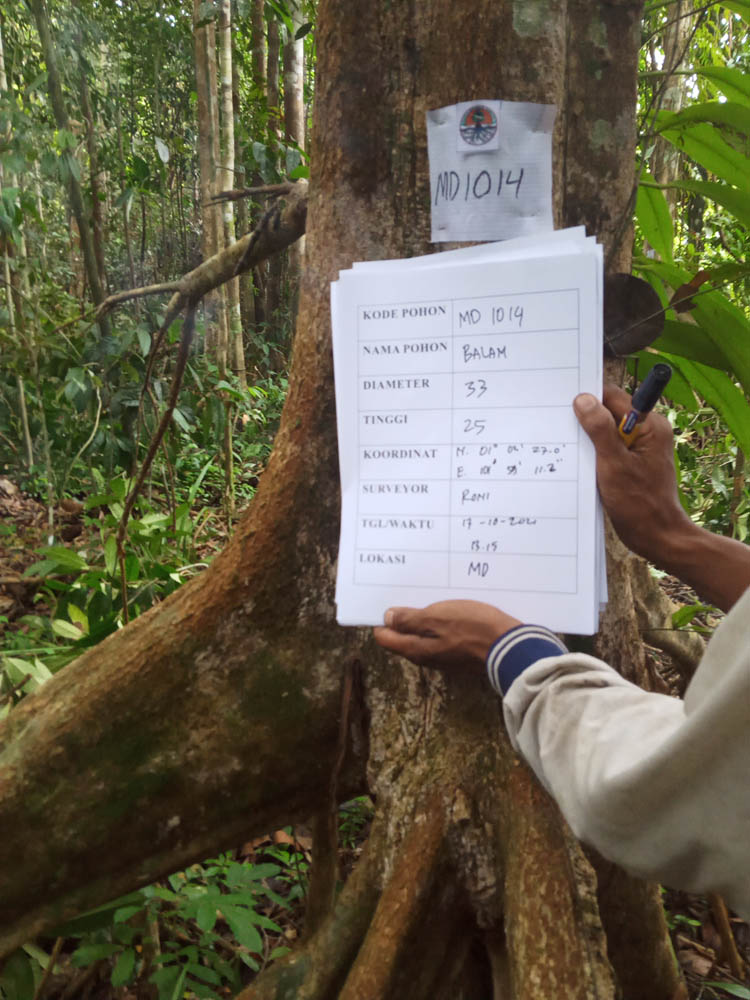 MD1014
KODE POHON MD 1014
NAMA POHON BALAM
DIAMETER 33
TINGGI 25
KOORDINAT N. 01° 02' 27.0'
E. 101° 58' 11.2"
SURVEYOR RONI
TGL/WAKTU 17-10-2021
13.15
LOKASI MD